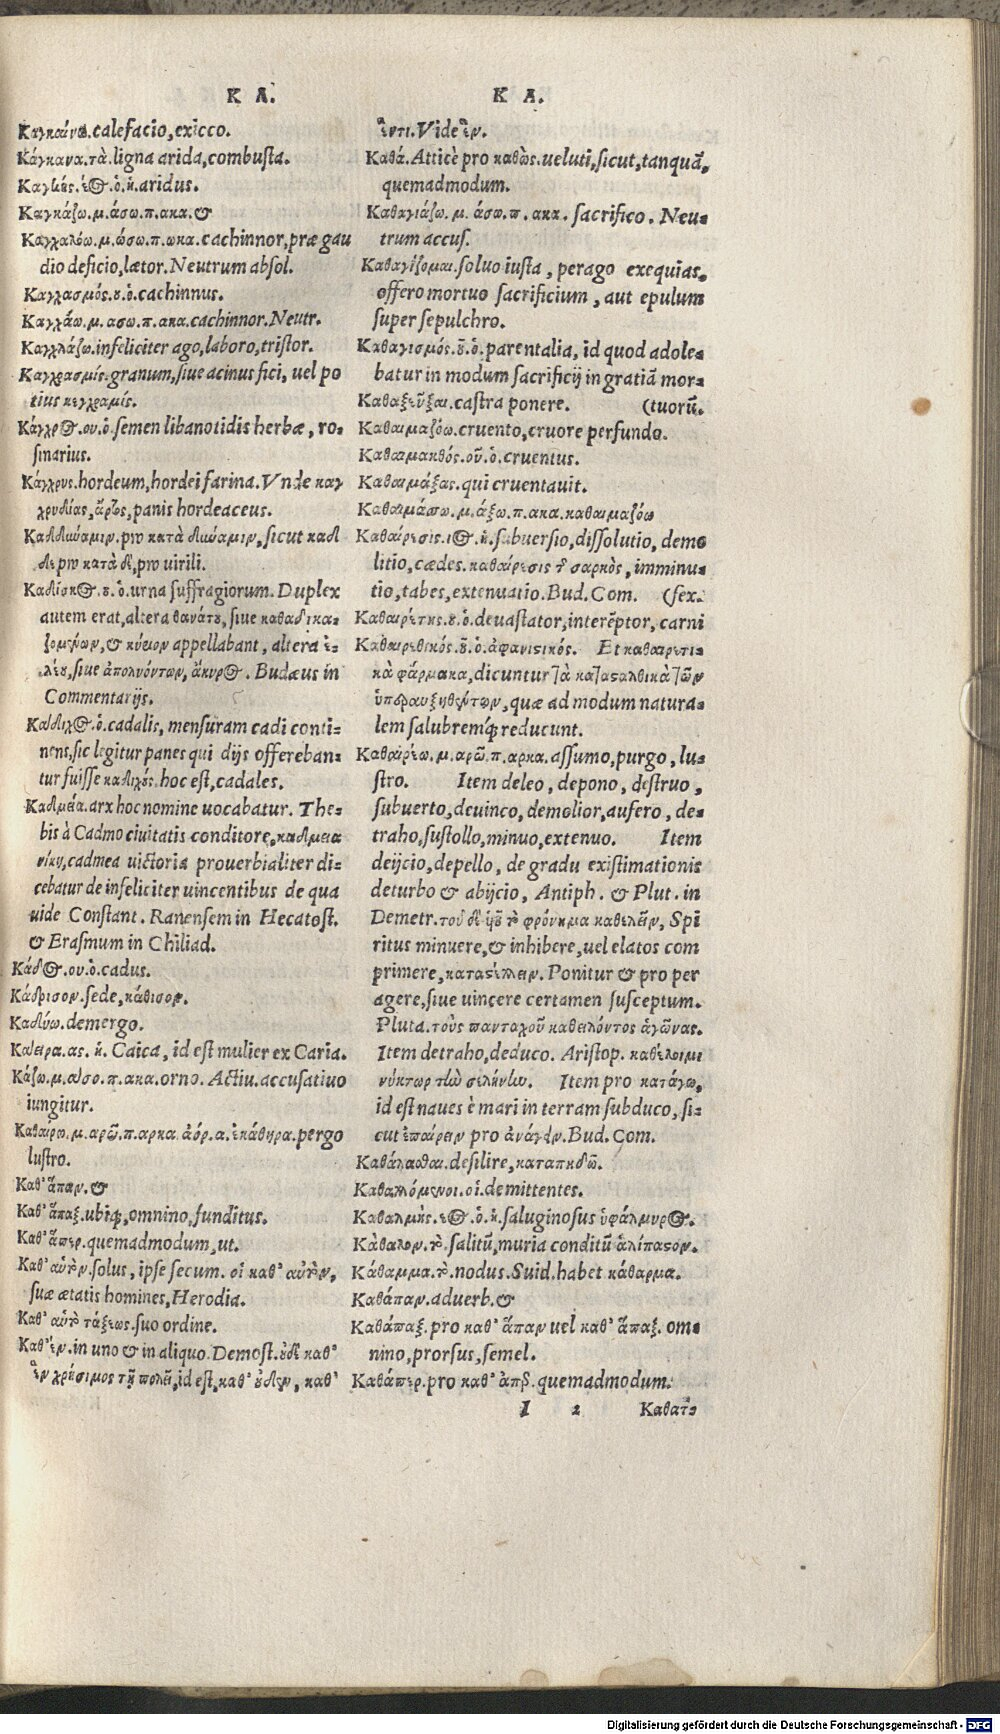 K A.
Καγκαίνω.calefacio,exicco.
Κάγκανα.τὰ.ligna arida,combusta.
Καγκής.έος.ὁ.ἡ.aridus.
Καγκάζω.μ.άσω.π.ακα.&
Καγχαλόω.μ.ώσω.π.ωκα.cachinnor,præ gau
dio deficio,lætor.Neutrum absol.
Καγχασμός.ȣ.ὁ.cachinnus.
Καγχάω.μ.ασω.π.ακα.cachinnor.Neutr.
Καγχλάζω.infeliciter ago,laboro,tristor.
Καγχρασμίς.granum,siue acinus fici, uel po
tius κεγχραμίς.
Κάγχρος.ου.ὁ.semen libanotidis herbæ, ro-
sinarius.
Κάγχρυς.hordeum,hordei farina.Vnde καγ
χρυδίας,ἄρτος,panis hordeaceus.
Καδδιώαμιν.pro κατὰ διώαμιν,sicut καδ
δε pro κατὰ δὲ,pro uirili.
Καδίσκος.ȣ.ὁ.urna suffragiorum.Duplex
autem erat,altera θανάτȣ, siue καθαδικα-
ζομένων,& κύειον appellabant, altera ἐ-
λέȣ,siue ἀπολυόντων,ἄκυρος. Budæus in
Commentarijs.
Καδδιχος.ὁ.cadalis, mensuram cadi conti-
nens,sic legitur panes qui dijs offereban-
tur fuisse καδιχȣ́ς.hoc est,cadales.
Καδμεία.arx hoc nomine uocabatur. The-
bis à Cadmo ciuitatis conditore,καδμεια
νίκη,cadmea uictoria prouerbialiter di-
cebatur de infeliciter uincentibus de qua
uide Constant. Ranensem in Hecatost.
& Erasmum in Chiliad.
Κάδος.ου.ὁ.cadus.
Κάδρισον.sede,κάθισον.
Καδύω.demergo.
Κάειρα.ας.ἡ. Caica, id est mulier ex Caria.
Κάζω.μ.άσο.π.ακα.orno. Actiu.accusatiuo
iungitur.
Καθαίρω.μ.αρῶ.π.αρκα.ἀόρ.α.ἐκάθηρα.pergo
lustro.
Καθ' ἅπαν.&
Καθ' ἅπαξ.ubiq;,omnino,funditus.
Καθ' ἅπερ.quemadmodum,ut.
Καθ' αὑτόν.solus, ipse secum. οἱ καθ' αὑτόν,
suæ ætatis homines,Herodia.
Καθ' αὑτὸ τάξεως.suo ordine.
Καθ' ἓν.in uno & in aliquo.Demost.ȣ̓δὲ καθ'
ἓν χρήσιμος τῇ πόλει,id est,καθ' ȣ̓δὲν, καθ'
K A.
ἓντι.Vide ἓν.
Καθά.Atticè pro καθὼς.ueluti,sicut,tanquã,
quemadmodum.
Καθαγιάζω. μ. άσω.π. ακα. sacrifico. Neu-
trum accus.
Καθαγίζομαι.soluo iusta, perago exequias,
offero mortuo sacrificium, aut epulum
super sepulchro.
Καθαγισμός.ȣ̃.ὁ.parentalia, id quod adole-
batur in modum sacrificij in gratiã mor-
Καθαξεῦξαι.castra ponere. (tuorũ.
Καθαιμαζόω.cruento,cruore perfundo.
Καθαιμακθός.οῦ.ὁ.cruentus.
Καθαιμάξας.qui cruentauit.
Καθαιμάσσω.μ.άξω.π.ακα.καθαιμαζόω
Καθαίρεσις.ιος.ἡ.subuersio,dissolutio, demo
litio,cædes. καθαίρεσις τ̃ σαρκὸς, imminu-
tio,tabes,extenuatio.Bud.Com. (fex.
Καθαιρέτης.ȣ.ὁ.deuastator,interẽptor, carni
Καθαιρεθικός.ȣ̃.ὁ.ἀφανιστικός. Et καθαιρετι-
κὰ φάρμακα,dicuntur τὰ καταςαλθικὰ τῶν
ὑπεραυξηθέντων,quæ ad modum natura-
lem salubremq́; reducunt.
Καθαιρέω.μ.αρῶ.π.αρκα.assumo,purgo, lu-
stro. Item deleo, depono, destruo,
subuerto,deuinco,demolior,aufero, de-
traho,sustollo,minuo,extenuo. Item
deijcio,depello, de gradu existimationis
deturbo & abijcio, Antiph. & Plut. in
Demetr.τοῦ δὲ ὑȣ̃ τὸ φρόνημα καθελεῖν, Spi
ritus minuere,& inhibere,uel elatos com
primere,καταςέλλειν. Ponitur & pro per
agere,siue uincere certamen susceptum.
Pluta.τοὺς πανταχοῦ καθελόντος ἀγῶνας.
Item detraho,deduco. Aristop. καθέλοιμι
νύκτωρ τὼ σελήνω. Item pro κατάγω,
id est naues è mari in terram subduco, si-
cut ἐπαίρειν pro ἀνάγειν.Bud.Com.
Καθάλασθαι.desilire,καταπηδῶ.
Καθαλλόμενοι.οἱ.demittentes.
Καθαλμὴς.έος.ὁ.ἡ.saluginosus ὑφάλμυρος.
Κὰθαλον.τὸ.salitũ,muria conditũ ἁλίπαςον.
Κάθαμμα.τὸ.nodus.Suid.habet κάθαρμα.
Καθάπαν.aduerb.&
Καθάπαξ.pro καθ' ἅπαν uel καθ' ἅπαξ. om-
nino,prorsus,semel.
Καθάπερ.pro καθ' ἁπερ.quemadmodum.
I 2 Καθατ-
Digitalisierung gefördert durch die Deutsche Forschungsgemeinschaft - DFG